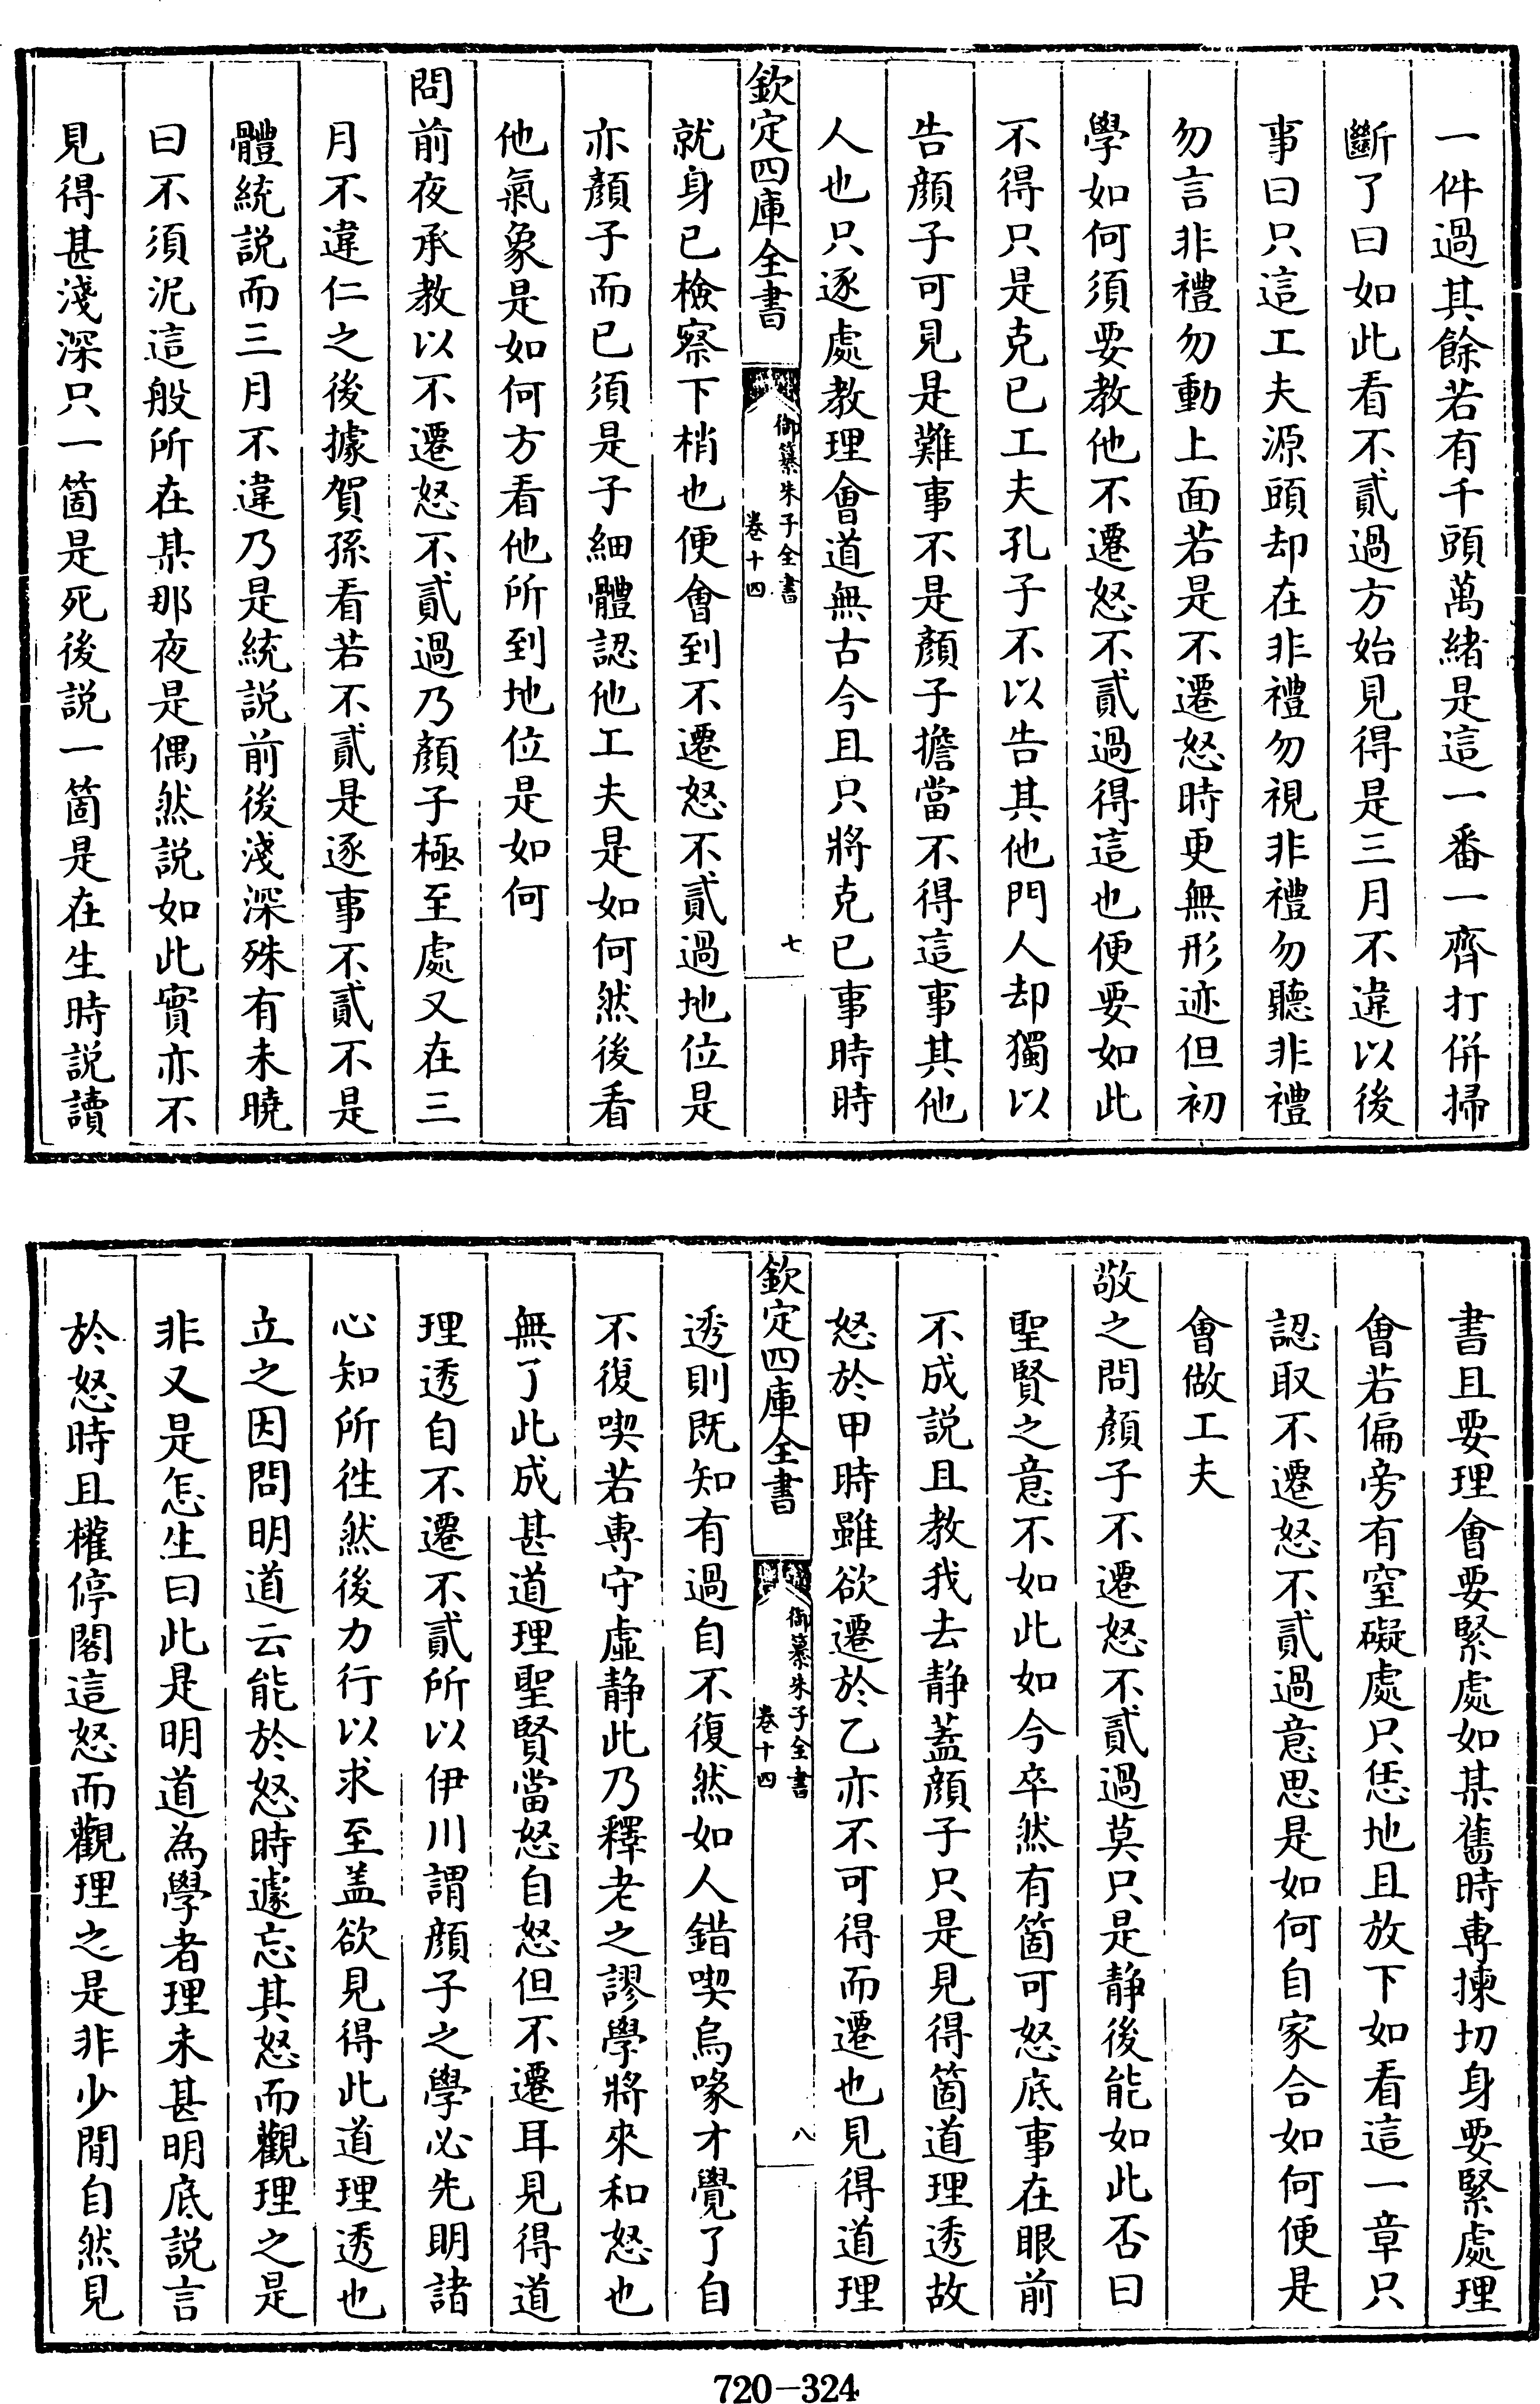 一件過其餘若有千頭萬緒是這一番一齊打併掃
斷了曰如此看不貳過方始見得是三月不違以後
事曰只這工夫源頭却在非禮勿視非禮勿聽非禮
勿言非禮勿動上面若是不遷怒時更無形迹但初
學如何須要教他不遷怒不貳過得這也便要如此
不得只是克已工夫孔子不以告其他門人却獨以
告顔子可見是難事不是顔子擔當不得這事其他
人也只逐處教理會道無古今且只將克已事時時
欽定四庫全書
御纂朱子全書
卷十四
七
就身已檢察下梢也便會到不遷怒不貳過地位是
亦顔子而已須是子細體認他工夫是如何然後看
他氣象是如何方看他所到地位是如何
問前夜承教以不遷怒不貳過乃顔子極至處又在三
月不違仁之後據賀孫看若不貳是逐事不貳不是
體統説而三月不違乃是統説前後淺深殊有未曉
曰不須泥這般所在某那夜是偶然説如此實亦不
見得甚淺深只一箇是死後説一箇是在生時説讀
書且要理會要緊處如某舊時専揀切身要緊處理
會若偏旁有窒礙處只恁地且放下如看這一章只
認取不遷怒不貳過意思是如何自家合如何便是
會做工夫
敬之問顔子不遷怒不貳過莫只是静後能如此否曰
聖賢之意不如此如今卒然有箇可怒底事在眼前
不成説且教我去静蓋顔子只是見得箇道理透故
怒於甲時雖欲遷於乙亦不可得而遷也見得道理
欽定四庫全書
御纂朱子全書
卷十四
八
透則既知有過自不復然如人錯喫烏喙才覺了自
不復喫若専守虚静此乃釋老之謬學將來和怒也
無了此成甚道理聖賢當怒自怒但不遷耳見得道
理透自不遷不貳所以伊川謂顔子之學必先明諸
心知所徃然後力行以求至盖欲見得此道理透也
立之因問明道云能於怒時遽忘其怒而觀理之是
非又是怎生曰此是明道為學者理未甚明底説言
於怒時且權停閣這怒而觀理之是非少間自然見
720-324